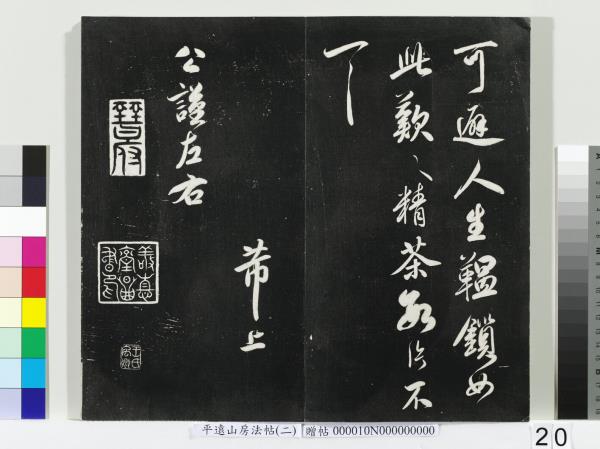 可避人生韁鎖如
此歎〻精茶數片不
一一
芾上
公謹左右
晉府
平遠山房法帖(二) 贈帖 000010N000000000
20